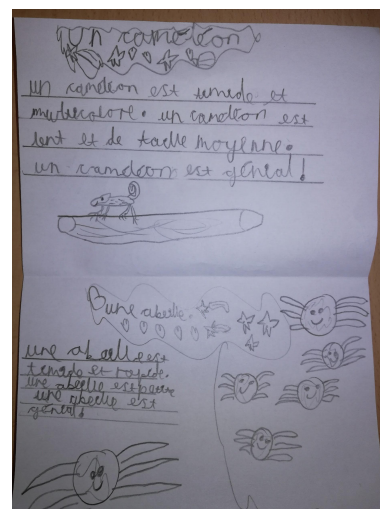 un caméléon
un caméleon est timide et
multicolore. un caméléon est
lent et de taille moyenne.
un caméléon est génial!
une abeille.
une abeille est
timide et rapide.
une abeille est petite
une abeille est
génial!